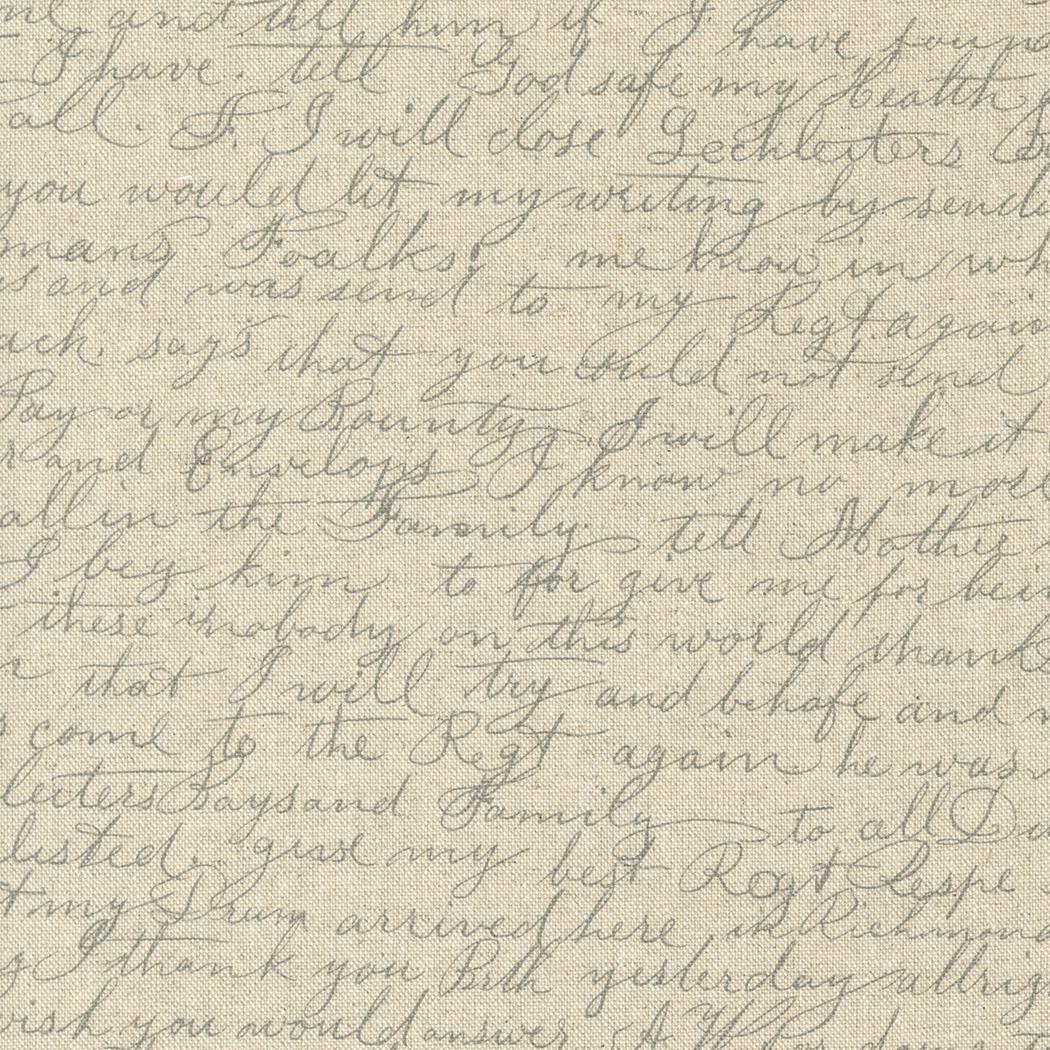 and tell him if I have found
I have. tell God safe my Health
all. F. I will close Lechleiters
you would let my writing by sendi
mans Foalks. me know in wh
is and was send to my Regt. again
ack. says that you could not send
Pay or my Bounty I will make it
r and Envelops I know no more
all in the Family. tell Mother
I beg him to for give me for bein
these is nobody on this world thanks
that I will try and behafe and
come to the Regt again he was
leiters Bays and Family to all
listed. give my best Regt Respe
t my Drum arrived here in Richmond
I thank you Bith yesterday allrig
wish you would answer. A W days